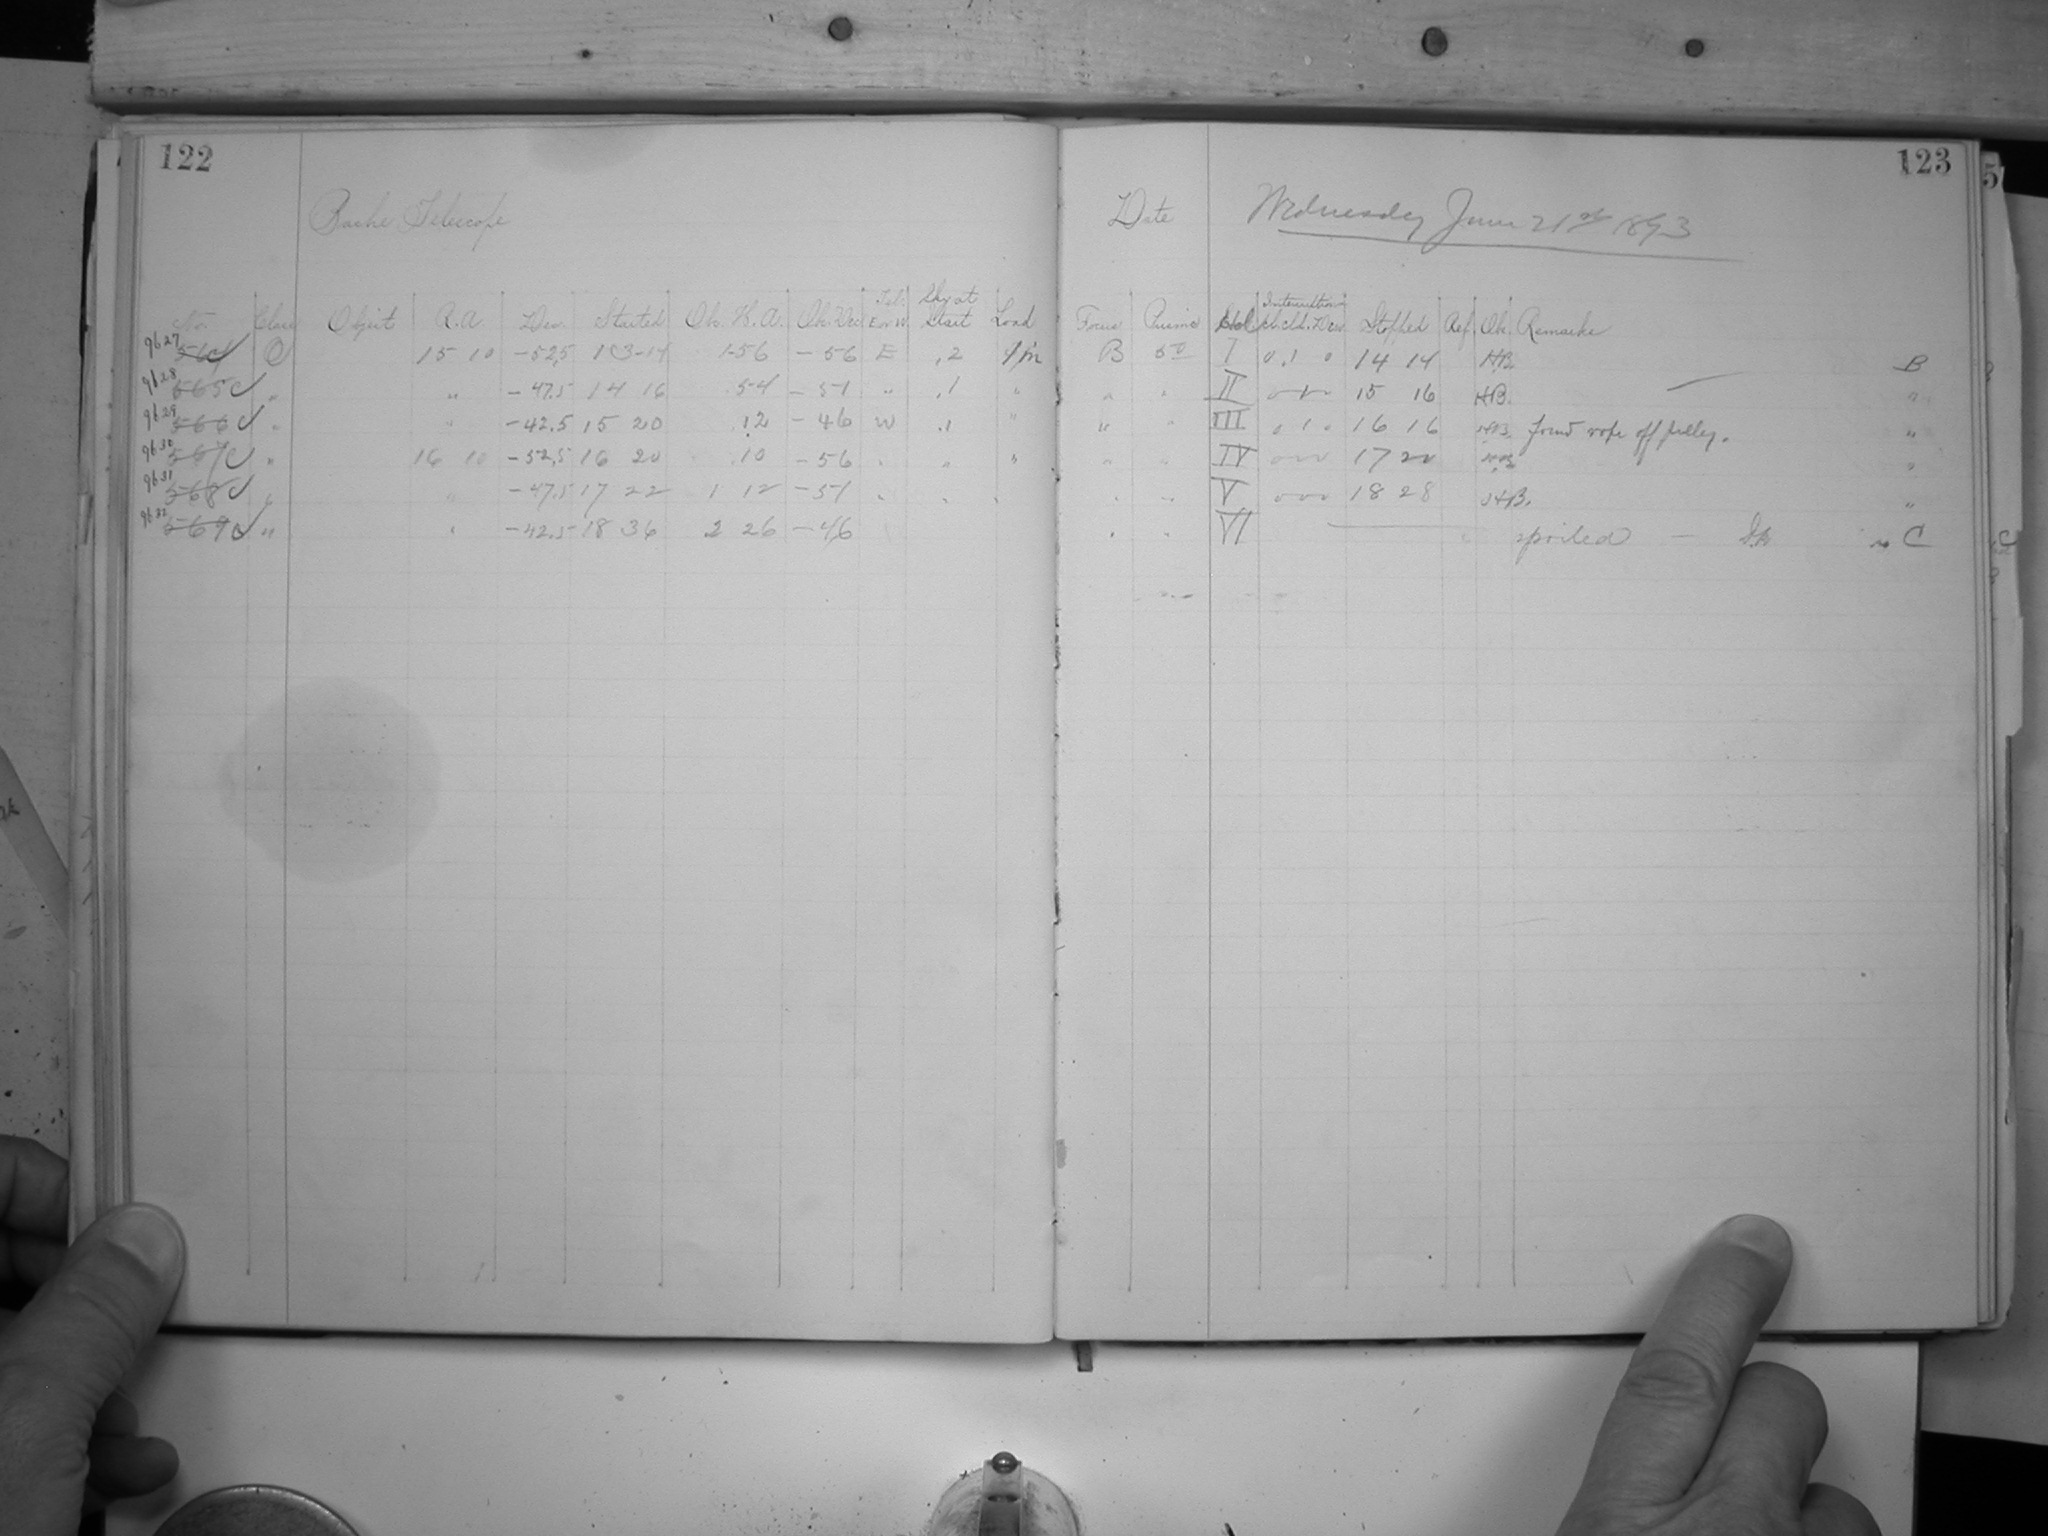 122
123
Bache Telescope
Date Wednesday June 21st 1893
No. Class Object R.A. Dec. Started Ob. H.A. Ob. Dec Tel. E or W Sky at Start Load Focus Prisms Hol. Stopped Ref. Ob. Remarks
9627 564 C 15 10 -52.5 13 14 1 56 -56 E .2 B I 14 14 HB. B
9628 565 " " -47.5 14 16 54 -51 " .1 " " " II 15 16 HB. "
9629 566 " " -42.5 15 20 .12 -46 W .1 " " " III 16 16 HB. found rope off pulley. "
9630 567 " 16 10 -52.5 16 20 10 -56 " " " " " IV 17 20 HB "
9631 568 " " -47.5 17 22 1 12 -51 " " " " " V 000 18 28 HB. "
9632 569 " " -42.5 18 36 2 26 -46 " " VI spoiled — C